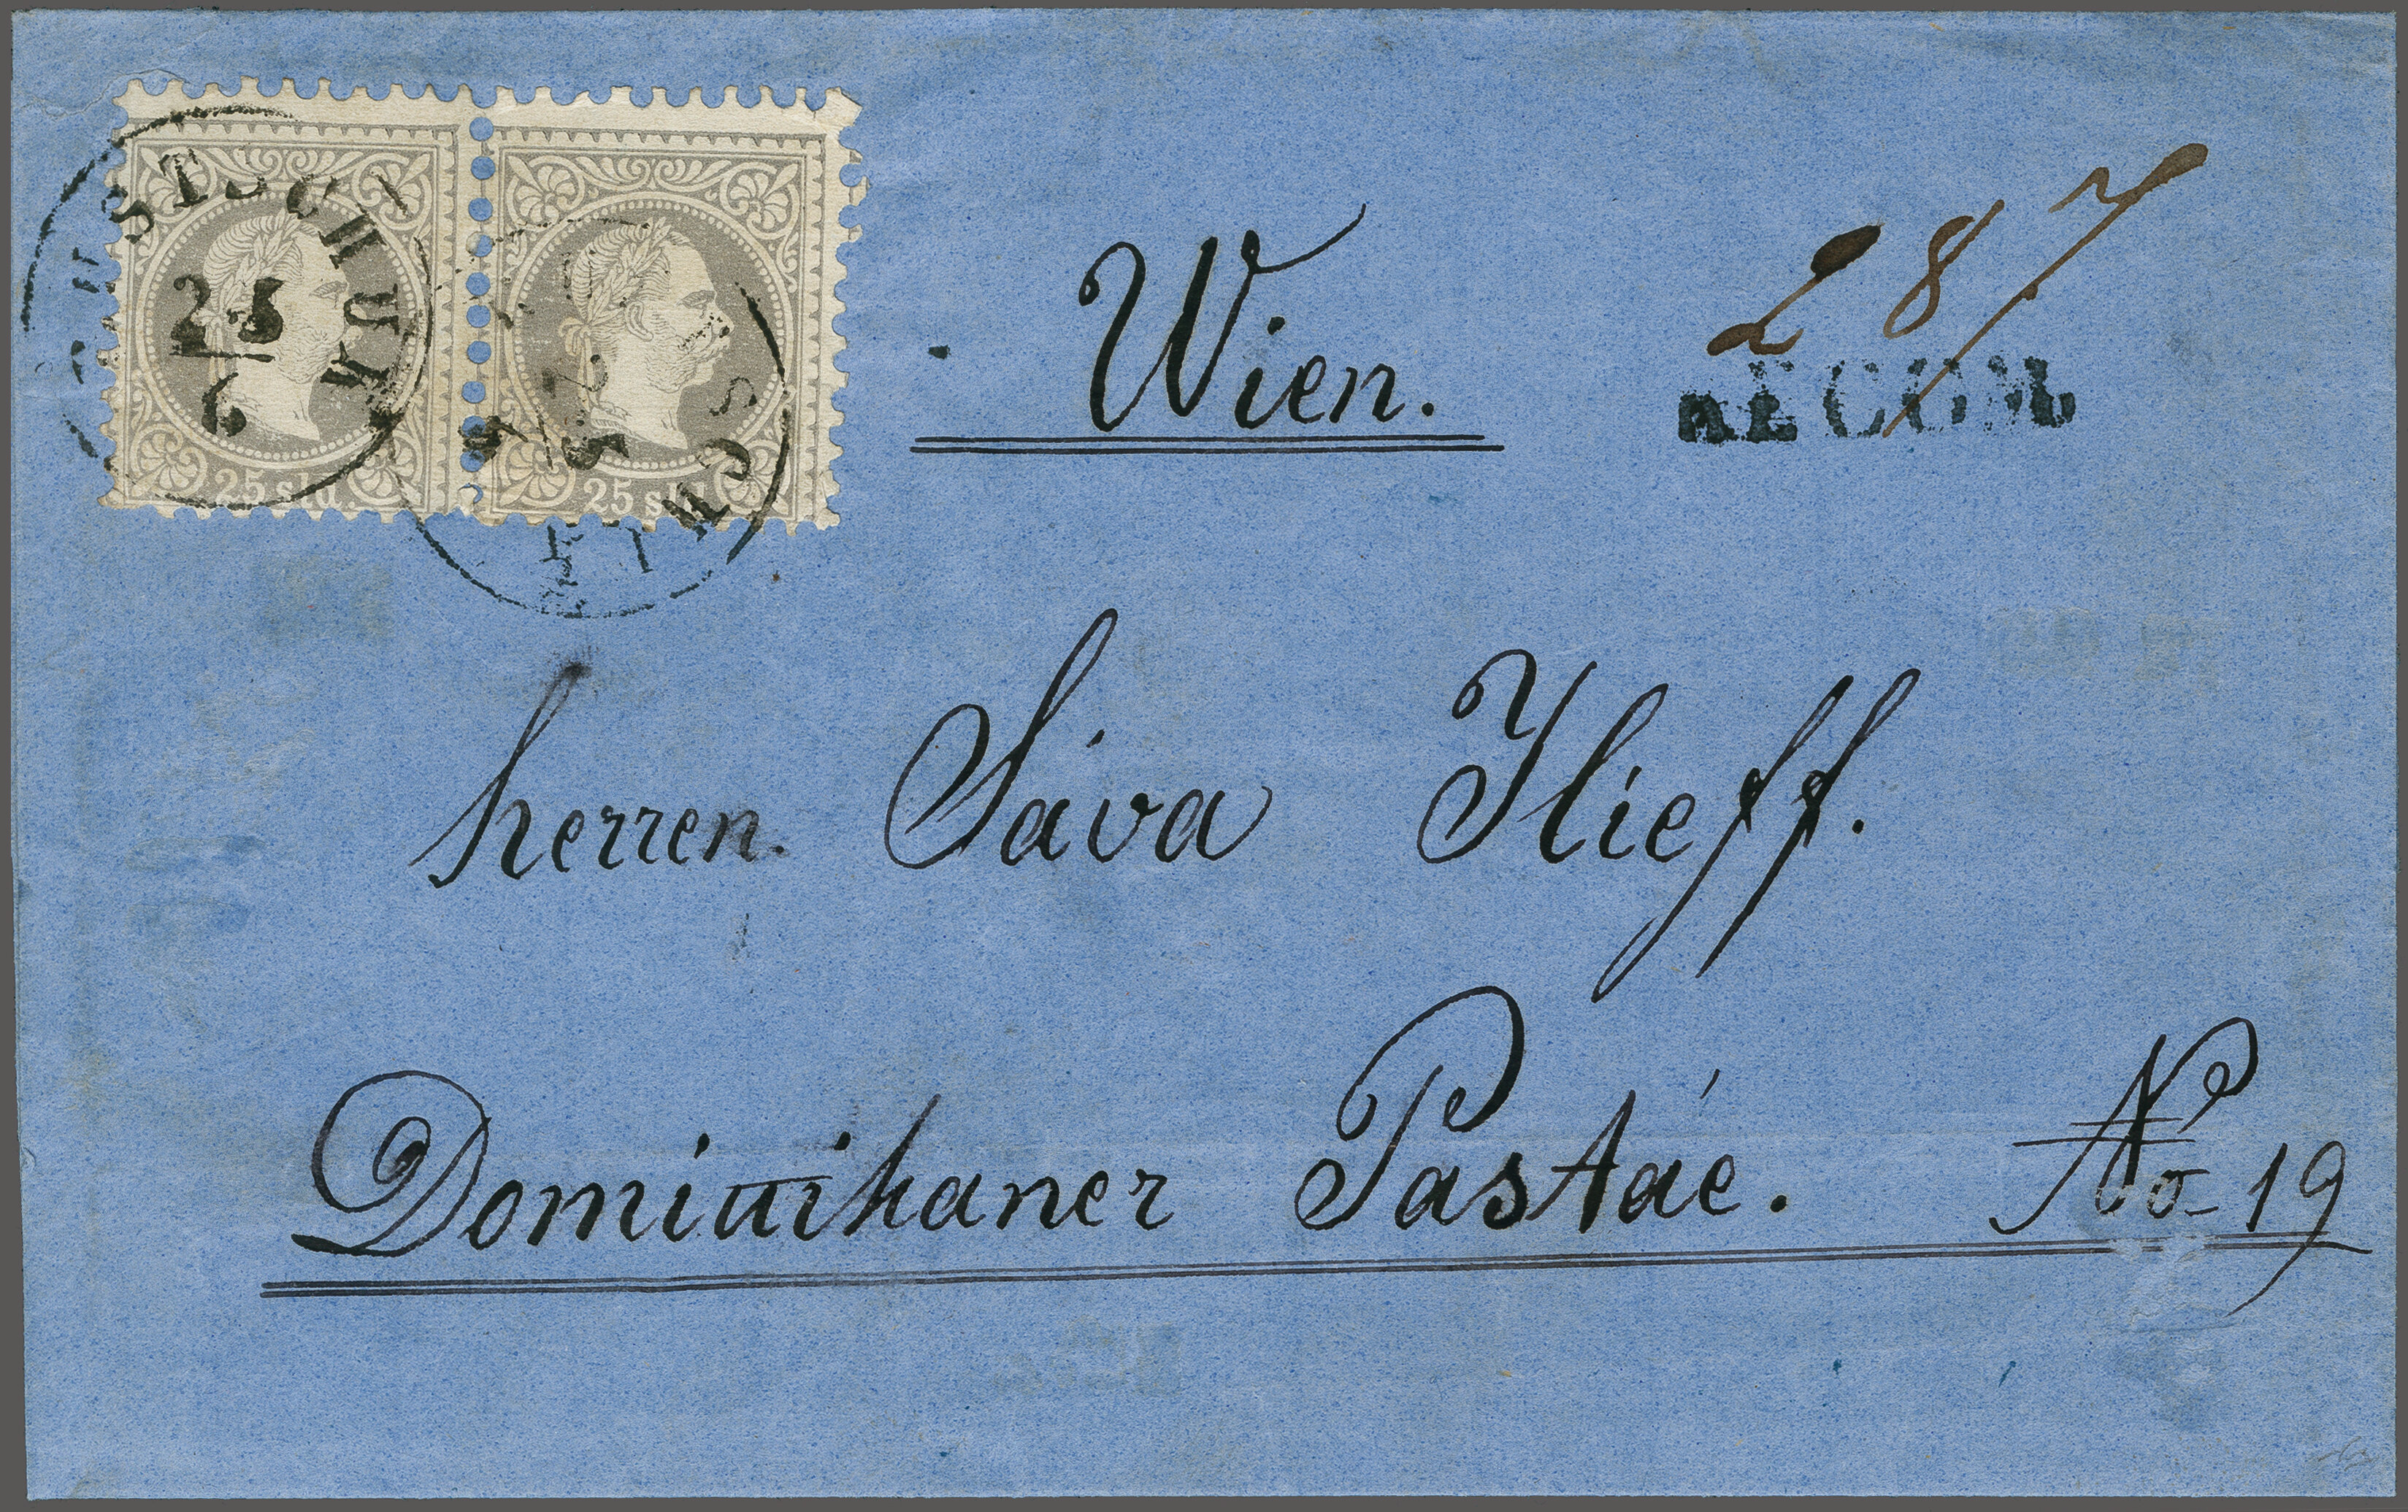 RUSTSCHUK
25
6
25 sld.
25 sld.
SCHU
Wien.
287
RECOM
herren. Sáva Ilieff.
Dominikaner Pastáe. No 19